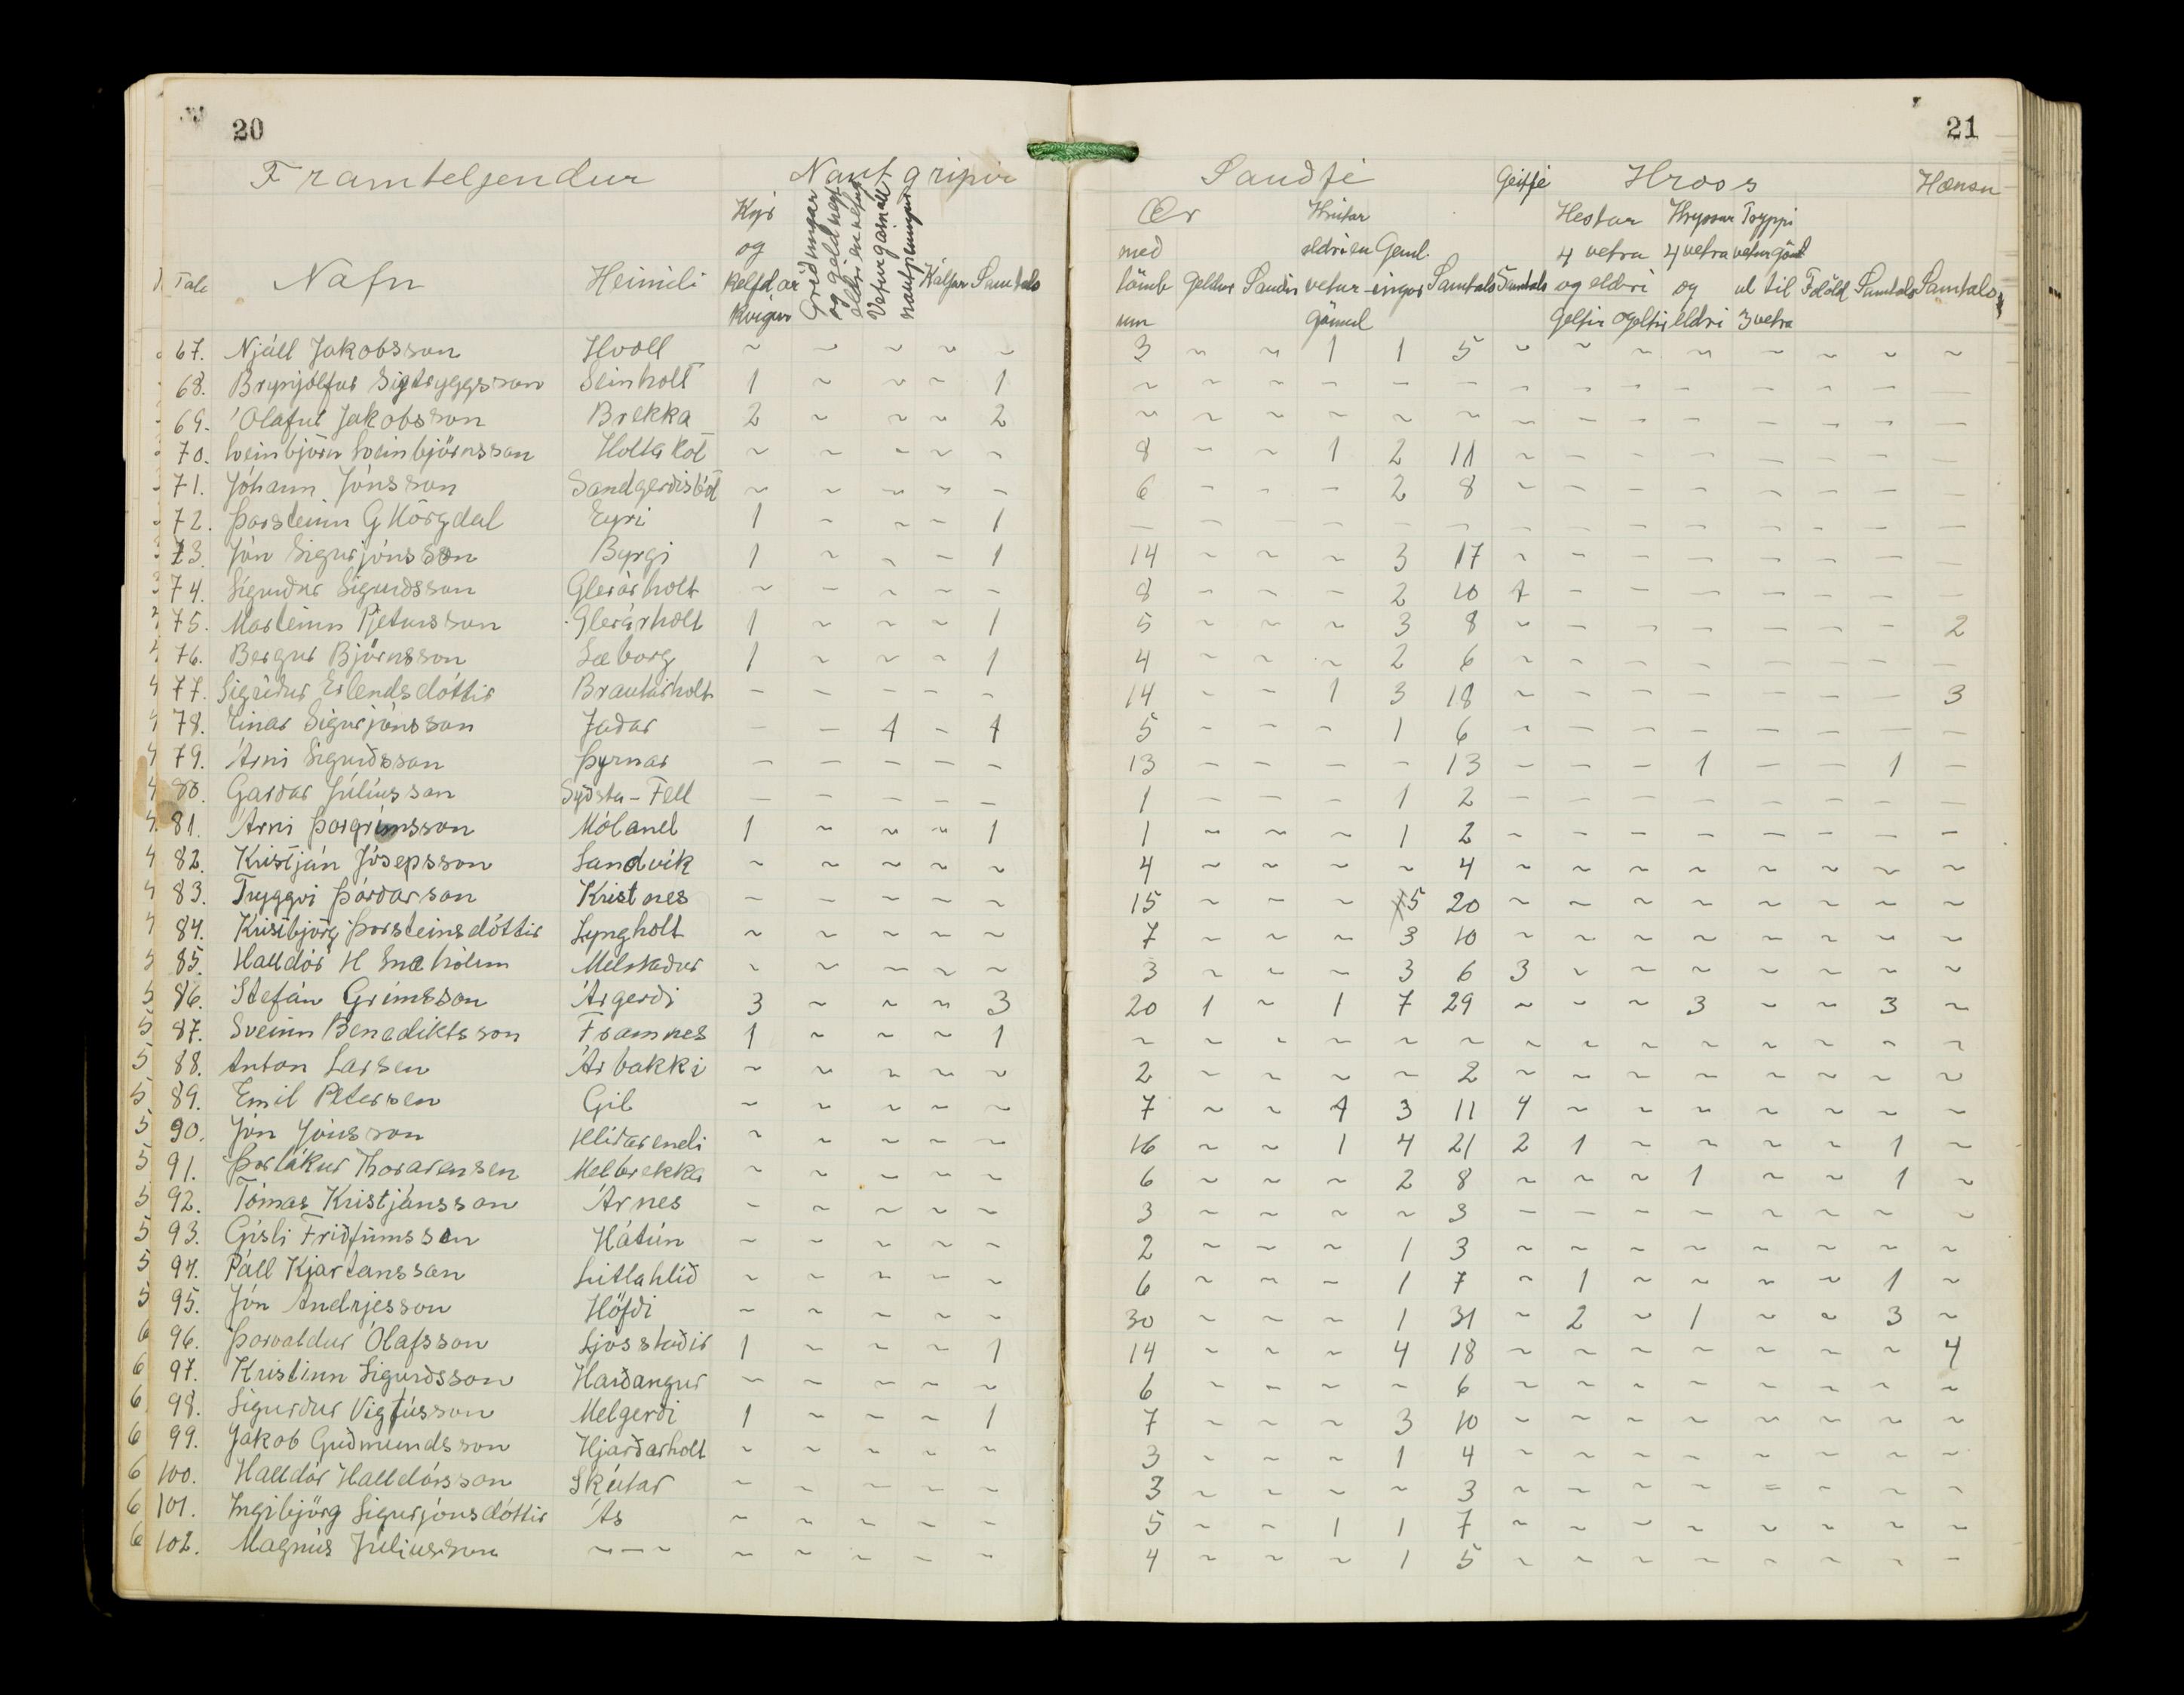 20
21
Framteljendur Nautgripir Sauðfé Geitfé Hross Hænsn
Tala Nafn Heimili Kýr og kelfdar kvígur Griðungar og geldneyti eldri en vetur Veturgamall nautpeningur Kálfar Samtals Ær með lömb um Geldar Sauðir Hrútar eldri en vetur gömul Geml. ingar Samtals Samtals Hestar 4 vetra og eldri geltir ógeltir Hryssur 4 vetra og eldri Tryppi veturgöml ul til 3 vetra Folöld Samtals Samtals
67. Njáll Jakobsson Hvoll ~ ~ ~ ~ ~ 3 ~ ~ 1 1 5 ~ ~ ~ ~ ~ ~ ~ ~
68. Brynjólfur Sigtryggsson Steinholt 1 ~ ~ ~ 1 ~ ~ ~ – – – – – – – – – – –
69. Ólafur Jakobsson Brekka 2 ~ ~ ~ 2 ~ ~ ~ ~ ~ ~ – – – – – – – –
70. Sveinbjörn Sveinbjörnsson Holtakot ~ ~ ~ ~ ~ 8 – – 1 2 11 ~ – – – – – – –
71. Jóhann Jónsson Sandgerðisbót ~ ~ ~ ~ – 6 – – – 2 8 ~ – – – – – – –
72. Þorsteinn G Hörgdal Eyri 1 ~ ~ – 1 – – – – – – – – – – – – – –
73. Jón Sigurjónsson Byrgi 1 ~ ~ – 1 14 ~ ~ ~ 3 17 ~ – – – – – – –
74. Sigurður Sigurðsson Glerárholt ~ – – – – 8 – – – 2 10 1 – – – – – – –
75. Marteinn Pjetursson Glerárholt 1 ~ ~ ~ 1 5 ~ ~ ~ 3 8 ~ – – – – – – 2
76. Bergur Björnsson Sæborg 1 ~ ~ ~ 1 4 ~ ~ ~ 2 6 ~ – – – – – – –
77. Sigríður Erlendsdóttir Brautarholt – – – – – 14 – – 1 3 18 ~ – – – – – – 3
78. Einar Sigurjónsson Jaðar – – 1 – 1 5 – – – 1 6 ~ – – – – – – –
79. Árni Sigurðsson Þyrnar – – – – – 13 – – – – 13 – – – 1 – – 1 –
80. Garðar Júlíusson Syðsta-Fell – – – – – 1 – – – 1 2 – – – – – – – –
81. Árni Þorgrímsson Móland 1 ~ ~ ~ 1 1 ~ ~ ~ 1 2 – – – – – – – –
82. Kristján Jósepsson Sandvík ~ ~ ~ ~ ~ 4 ~ ~ ~ ~ 4 ~ ~ ~ ~ ~ ~ ~ ~
83. Tryggvi Þórðarson Kristnes – – – – – 15 ~ ~ ~ 5 20 ~ ~ ~ ~ ~ ~ ~ ~
84. Kristbjörg Þorsteinsdóttir Lyngholt ~ ~ ~ ~ ~ 7 ~ ~ ~ 3 10 ~ ~ ~ ~ ~ ~ ~ ~
85. Halldór H Snæhólm Melstaður ~ ~ ~ ~ ~ 3 ~ ~ ~ 3 6 3 ~ ~ ~ ~ ~ ~ ~
86. Stefán Grímsson Árgerði 3 ~ ~ ~ 3 20 1 ~ 1 7 29 ~ ~ ~ 3 ~ ~ 3 ~
87. Sveinn Benediktsson Framnes 1 ~ ~ ~ 1 ~ ~ ~ ~ ~ ~ ~ ~ ~ ~ ~ ~ ~ ~
88. Anton Larsen Árbakki ~ ~ ~ ~ ~ 2 ~ ~ ~ ~ 2 ~ ~ ~ ~ ~ ~ ~ ~
89. Emil Petersen Gil ~ ~ ~ ~ ~ 7 ~ ~ 1 3 11 4 ~ ~ ~ ~ ~ ~ ~
90. Jón Jónsson Hlíðarendi ~ ~ ~ ~ ~ 16 ~ ~ 1 4 21 2 1 ~ ~ ~ ~ 1 ~
91. Þorlákur Thorarensen Melbrekka ~ ~ ~ ~ ~ 6 ~ ~ ~ 2 8 ~ ~ ~ 1 ~ ~ 1 ~
92. Tómas Kristjánsson Árnes ~ ~ ~ ~ ~ 3 ~ ~ ~ ~ 3 – – – – ~ ~ ~ ~
93. Gísli Friðfinnsson Hátún ~ ~ ~ ~ ~ 2 ~ ~ ~ 1 3 ~ ~ ~ ~ ~ ~ ~ ~
94. Páll Kjartansson Litlahlíð ~ ~ ~ ~ ~ 6 ~ ~ ~ 1 7 ~ 1 ~ ~ ~ ~ 1 ~
95. Jón Andrjesson Höfði ~ ~ ~ ~ ~ 30 ~ ~ ~ 1 31 ~ 2 ~ 1 ~ ~ 3 ~
96. Þorvaldur Ólafsson Ljósstaðir 1 ~ ~ ~ 1 14 ~ ~ ~ 4 18 ~ ~ ~ ~ ~ ~ ~ 4
97. Kristinn Sigurðsson Harðangur ~ ~ ~ ~ ~ 6 ~ ~ ~ ~ 6 ~ ~ ~ ~ ~ ~ ~ ~
98. Sigurður Vigfússon Melgerði 1 ~ ~ ~ 1 7 ~ ~ ~ 3 10 ~ ~ ~ ~ ~ ~ ~ ~
99. Jakob Guðmundsson Hjarðarholt ~ ~ ~ ~ ~ 3 ~ ~ ~ 1 4 ~ ~ ~ ~ ~ ~ ~ ~
100. Halldór Halldórsson Skútar ~ ~ ~ ~ ~ 3 ~ ~ ~ ~ 3 ~ ~ ~ ~ = ~ ~ ~
101. Ingibjörg Sigurjónsdóttir Ás ~ ~ ~ ~ ~ 5 ~ ~ 1 1 7 ~ ~ ~ ~ ~ ~ ~ ~
102. Magnús Júlíusson ~–~ ~ ~ ~ ~ ~ 4 ~ ~ ~ 1 5 ~ ~ ~ ~ ~ ~ ~ –